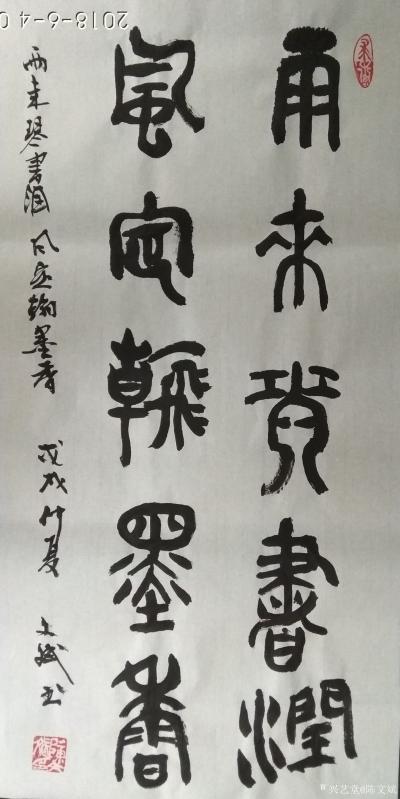 雨来琴書潤
風定翰墨香
雨来琴書润 风定翰墨香 戊戌仲夏 文斌书
2018-6-4 0
兴艺堂@陈文斌